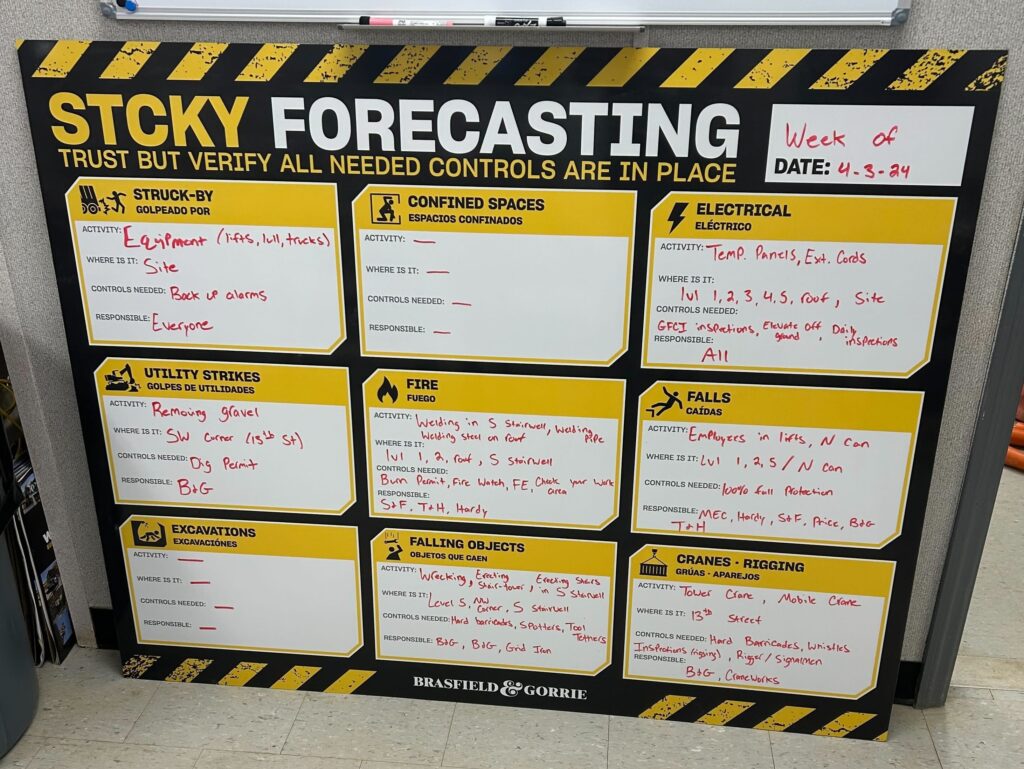 STCKY FORECASTING
TRUST BUT VERIFY ALL NEEDED CONTROLS ARE IN PLACE
Week of
DATE: 4-3-24
STRUCK-BY
GOLPEADO POR
ACTIVITY: Equipment (lifts, lull, trucks)
WHERE IS IT: Site
CONTROLS NEEDED: Back up alarms
RESPONSIBLE: Everyone
CONFINED SPACES
ESPACIOS CONFINADOS
ACTIVITY: —
WHERE IS IT: —
CONTROLS NEEDED: —
RESPONSIBLE: —
ELECTRICAL
ELÉCTRICO
ACTIVITY: Temp. Panels, Ext. Cords
WHERE IS IT:
lvl 1, 2, 3, 4, 5, roof, Site
CONTROLS NEEDED:
GFCI inspections, Elevate Off ground, Daily inspections
RESPONSIBLE:
All
UTILITY STRIKES
GOLPES DE UTILIDADES
ACTIVITY: Removing gravel
WHERE IS IT: SW Corner (13th St)
CONTROLS NEEDED: Dig Permit
RESPONSIBLE: B+G
FIRE
FUEGO
ACTIVITY: Welding in S Stairwell, Welding Pipe
Welding steel on roof
WHERE IS IT:
lvl 1, 2, roof, S stairwell
CONTROLS NEEDED:
Burn Permit, Fire Watch, FE, Check your work area
RESPONSIBLE:
S+F, T+H, Hardy
FALLS
CAÍDAS
ACTIVITY: Employees in lifts, N Can
WHERE IS IT: Lvl 1, 2, 5 / N Can
CONTROLS NEEDED: 100% fall Protection
RESPONSIBLE: MEC, Hardy, S+F, Price, B+G
T+H
EXCAVATIONS
EXCAVACIÓNES
ACTIVITY: —
WHERE IS IT: —
CONTROLS NEEDED: —
RESPONSIBLE: —
FALLING OBJECTS
OBJETOS QUE CAEN
ACTIVITY: Wrecking, Erecting Stair-tower, Erecting Stairs in S Stairwell
WHERE IS IT: Level 5, NW Corner, S Stairwell
CONTROLS NEEDED: Hard barricades, Spotters, Tool Tethers
RESPONSIBLE: B+G, B+G, Grid Iron
CRANES - RIGGING
GRÚAS - APAREJOS
ACTIVITY: Tower Crane, Mobile Crane
WHERE IS IT: 13th Street
CONTROLS NEEDED: Hard Barricades, Whistles
Inspections (rigging), Rigger/Signalmen
RESPONSIBLE:
B+G, CraneWorks
BRASFIELD & GORRIE